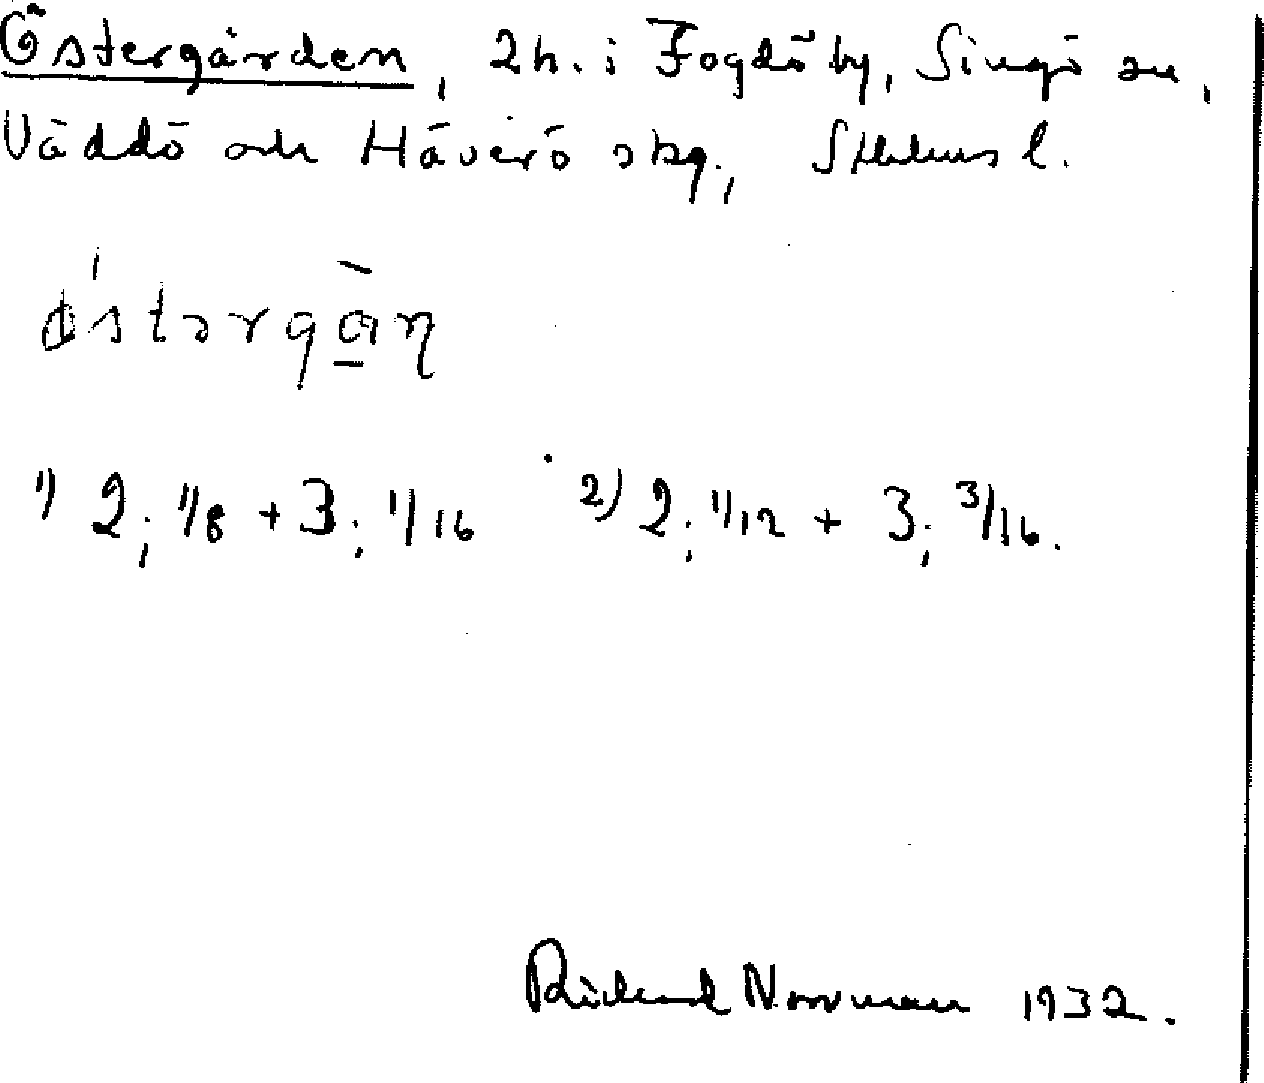 Östergården, 2 h. i Fogdö by, Singö sn,
Väddö och Häverö skg., Sthlms l.
ǿstərga̲̅n̥
1) 2; 1/8 + 3; 1/16 2) 2; 1/12 + 3; 3/16.
Richard Norrman 1932.